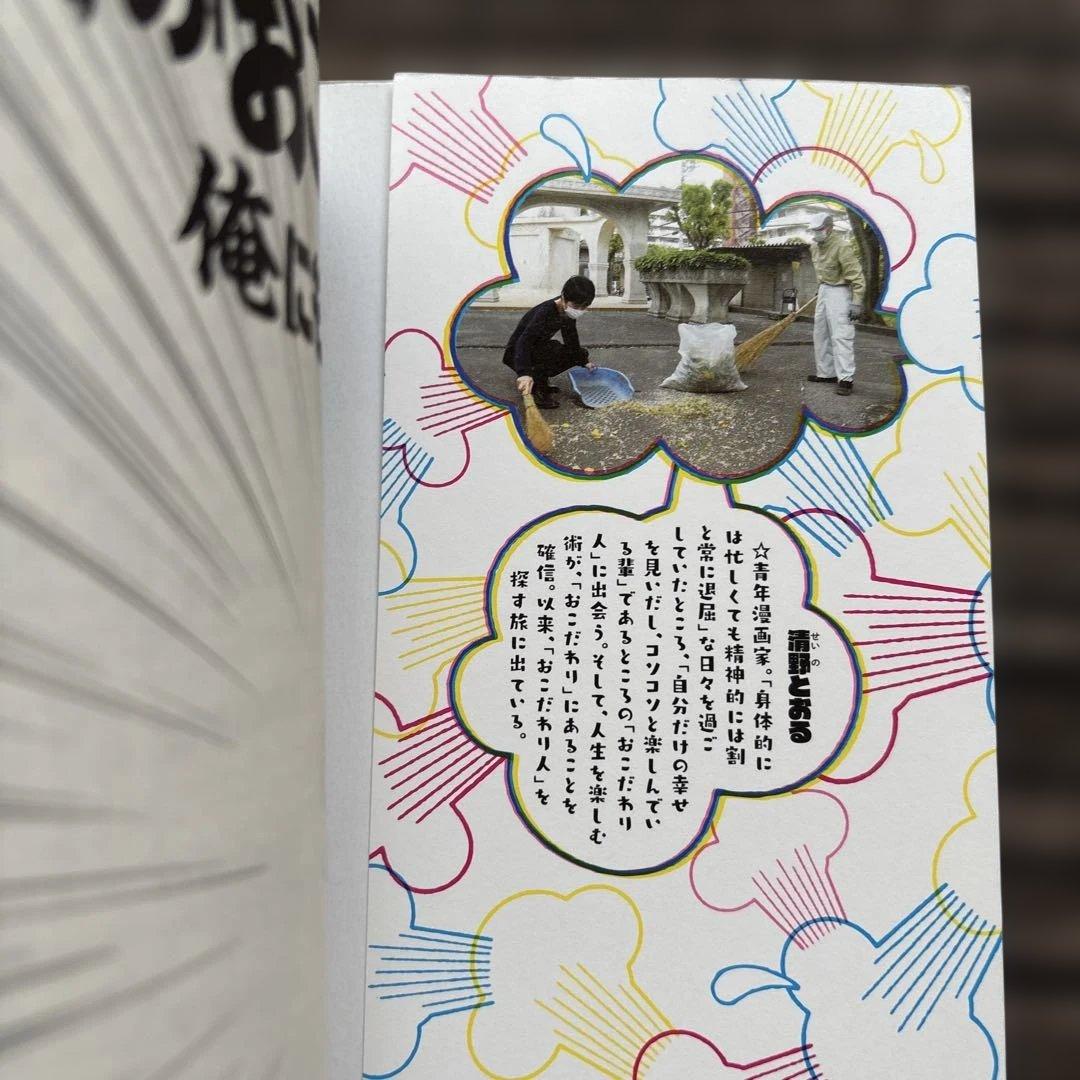 清野とおる
せいの
☆青年漫画家。「身体的に
は忙しくても精神的には割
と常に退屈」な日々を過ご
していたところ、「自分だけの幸せ
を見いだし、コソコソと楽しんでい
る輩」であるところの「おこだわり
人」に出会う。そして、人生を楽しむ
術が、「おこだわり」にあることを
確信。以来、「おこだわり人」を
探す旅に出ている。
俺に